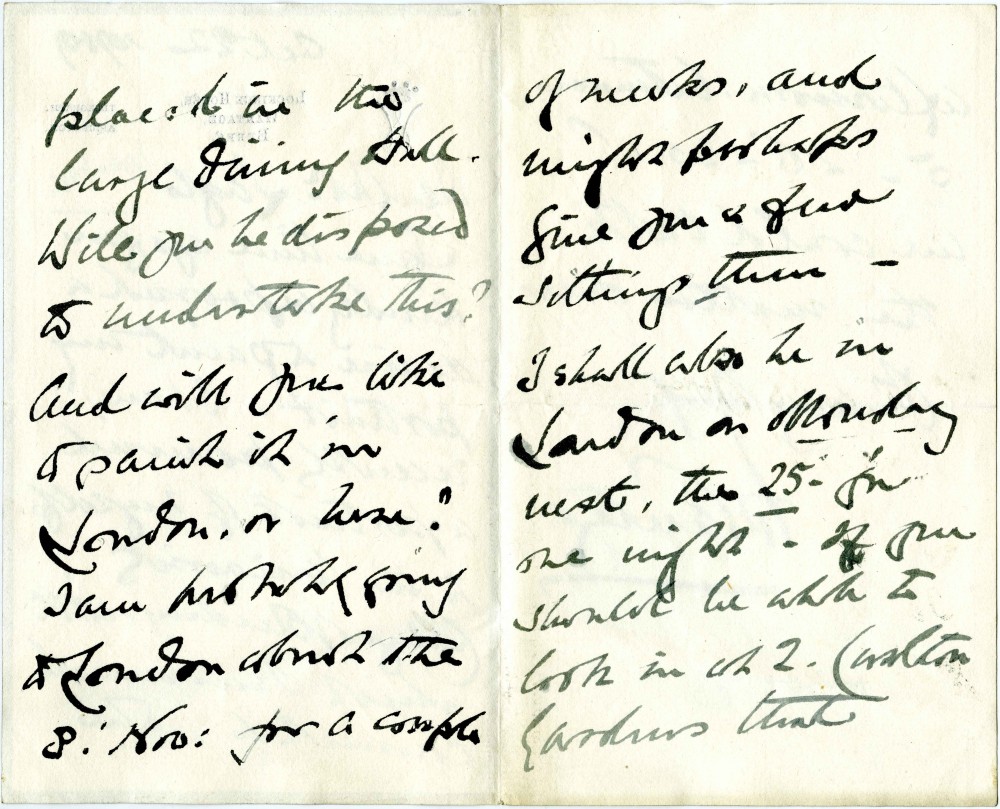 placed in the
large Dining Hall.
Will you be disposed
to undertake this?
And will you like
to paint it in
London, or here?
I am probably going
to London about the
8: Nov: for a couple
of weeks, and
might perhaps
give you a few
sittings then –
I shall also be in
London on Monday
next, the 25: for
one night - If you
should be able to
look in at 2. Carlton
Gardens that